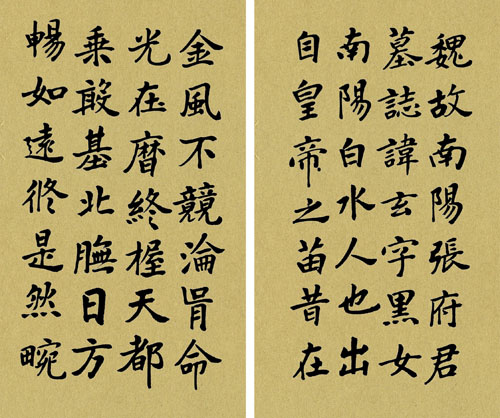 魏故南陽張府君
墓誌諱玄字黑女
南陽白水人也出
自皇帝之苗昔在
金風不競淪胥命
光在曆終握天都
乘敢基北膴日方
暢如遠脩是然畹